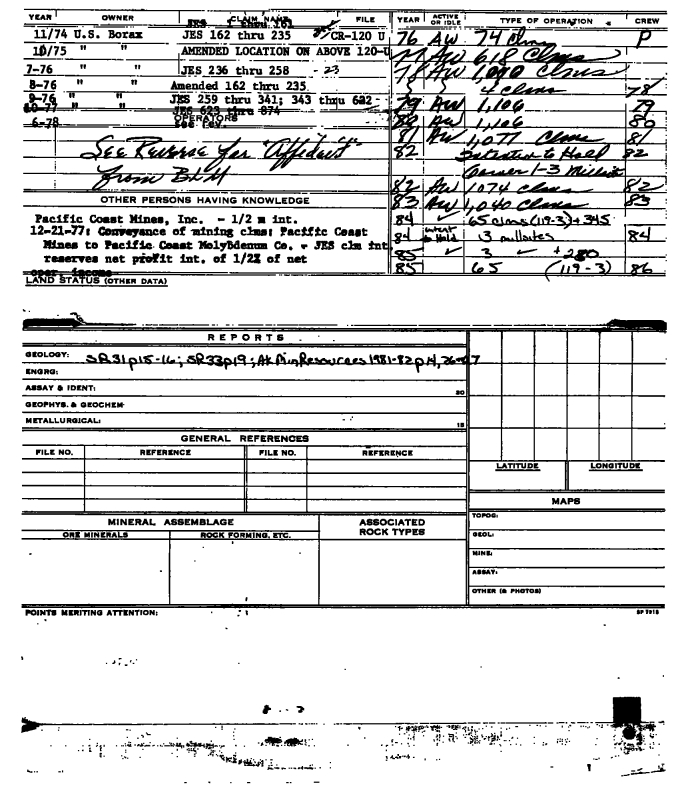 YEAR OWNER CLAIM NAME FILE
JES 1 thru 161
11/74 U.S. Borax JES 162 thru 235 CR-120 U
10/75 " " AMENDED LOCATION ON ABOVE 120-U
7-76 " " JES 236 thru 258 - 23
8-76 " Amended 162 thru 235
9-76 " " JES 259 thru 341; 343 thru 622-
10-77 " " JES 623 thru 874
OPERATORS
6-78 See rev.
See Reverse for "Affidavit"
from BLM
OTHER PERSONS HAVING KNOWLEDGE
Pacific Coast Mines, Inc. - 1/2 m int.
12-21-77: Conveyance of mining clms: Pacific Coast
Mines to Pacific Coast Molybdenum Co. - JES clm int
reserves net profit int. of 1/2% of net
oper. income
LAND STATUS (OTHER DATA)
YEAR ACTIVE OR IDLE TYPE OF OPERATION CREW
76 AW 74 clms P
77 AW 618 Clms
78 AW 1,090 Clms
4 clms 78
79 AW 1,106 79
80 AW 1,106 80
81 AW 1,077 Clms 81
82 Intention to Hold 82
1-3
82 AW 1074 clms 82
83 AW 1,040 clms 83
84 ✓ 65 clms (119-3) + 345
84 Intent to Hold 13 millsites 84
85 ✓ 3 ✓ +280
85 65 (119-3) 86
REPORTS
GEOLOGY: SR31p15-16; SR33p19; Ak Min Resources 1981-82 p14, 26-27
ENGRG:
ASSAY & IDENT: 20
GEOPHYS. & GEOCHEM
METALLURGICAL: 15
GENERAL REFERENCES
FILE NO. REFERENCE FILE NO. REFERENCE
LATITUDE LONGITUDE
MINERAL ASSEMBLAGE ASSOCIATED ROCK TYPES
ORE MINERALS ROCK FORMING, ETC.
MAPS
TOPOG:
GEOL:
MINE:
ASSAY:
OTHER (& PHOTOS)
POINTS MERITING ATTENTION: SP 7915